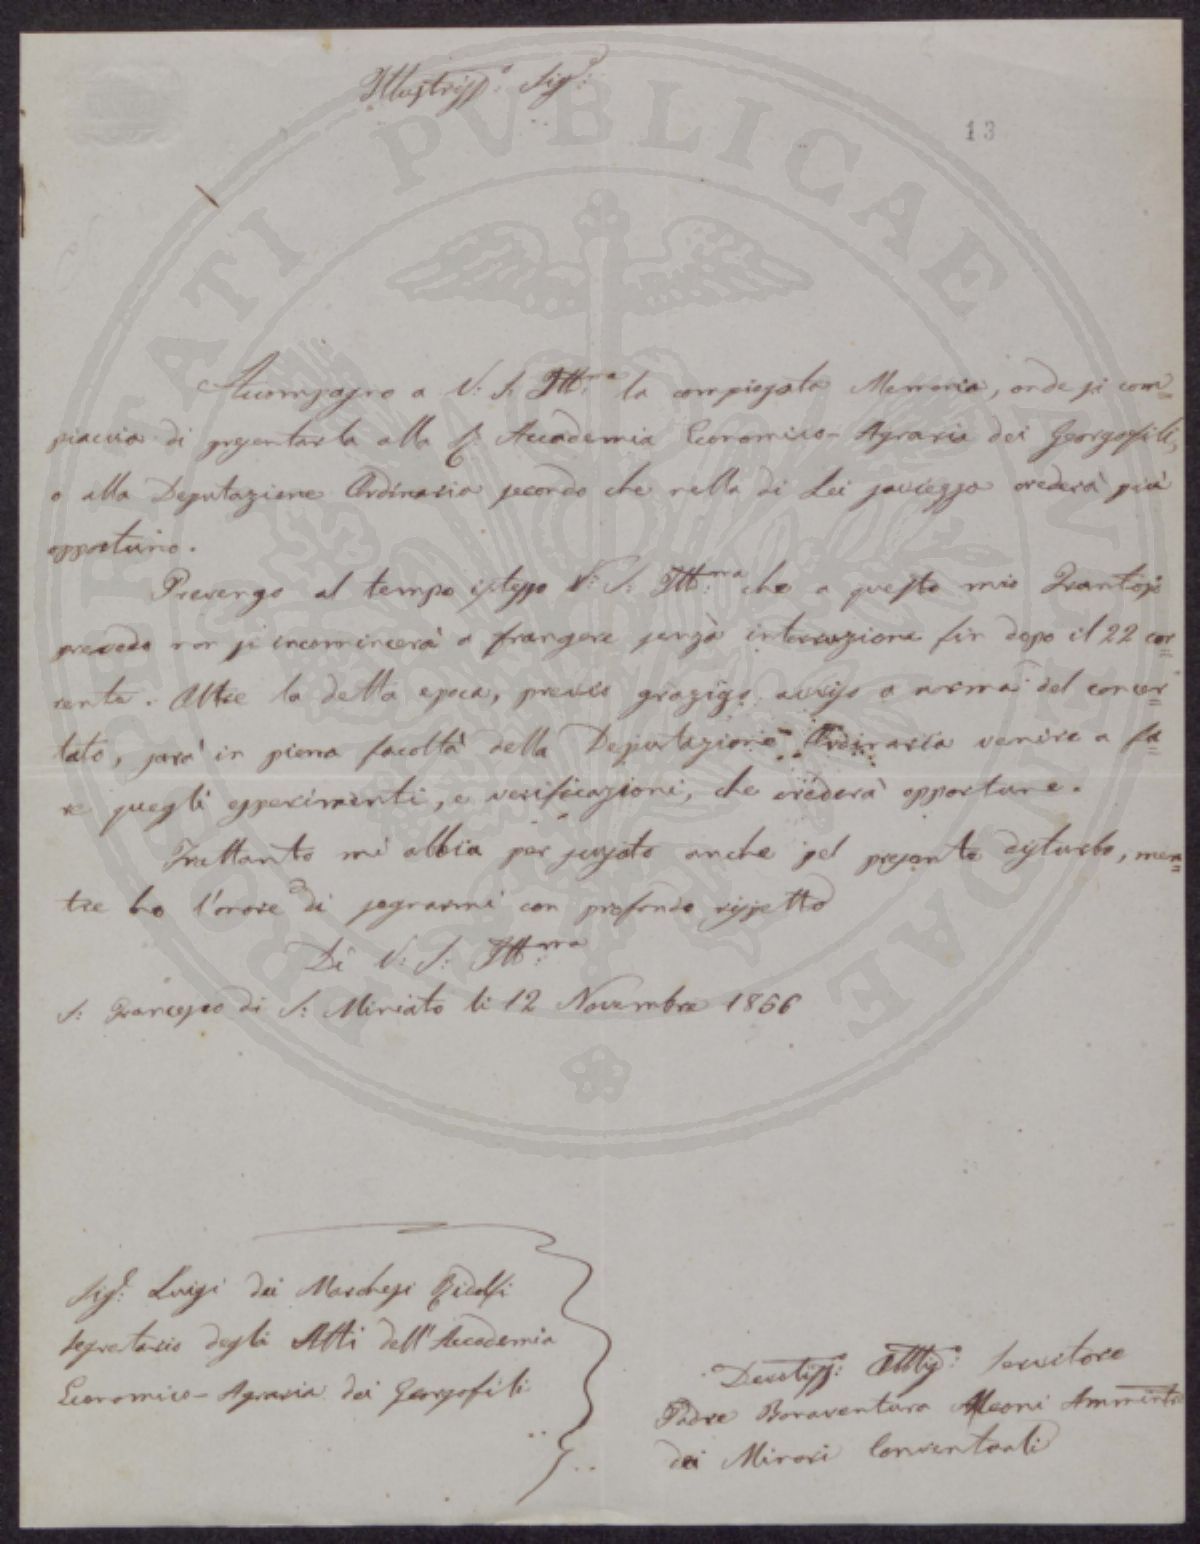 Illustriss.o Sig.r
13
Accompagno a V: S: Ill:ma la compiegata Memoria, onde si com=
piaccia di presentarla alla R. Accademia Economico-Agraria dei Georgofili,
o alla Deputazione Ordinaria secondo che nella di Lei saviezza crederà più
opportuno.
Prevengo al tempo istesso V: S: Ill:ma che a questo mio Frantojo
prevedo non si incomincerà a frangere senza interruzione fin dopo il 22 cor=
rente. Oltre la detta epoca, previo grazioso avviso a norma del concer=
tato, sarà in piena facoltà della Deputazione Ordinaria venire a fa=
re quegli esperimenti, e verificazioni, che crederà opportune.
Frattanto mi abbia per scusato anche pel presente disturbo, men=
tre ho l'onore di segnarmi con profondo rispetto
Di V: S: Ill:ma
S: Francesco di S: Miniato li 12 Novembre 1856
Sig.r Luigi dei Marchesi Ridolfi
Segretario degli Atti dell'Accademia
Economico-Agraria dei Georgofili
Devotiss: Obblig: Servitore
Padre Bonaventura Alconi
dei Minori Conventuali
PROSPERITATI PVBLICAE AVGENDAE